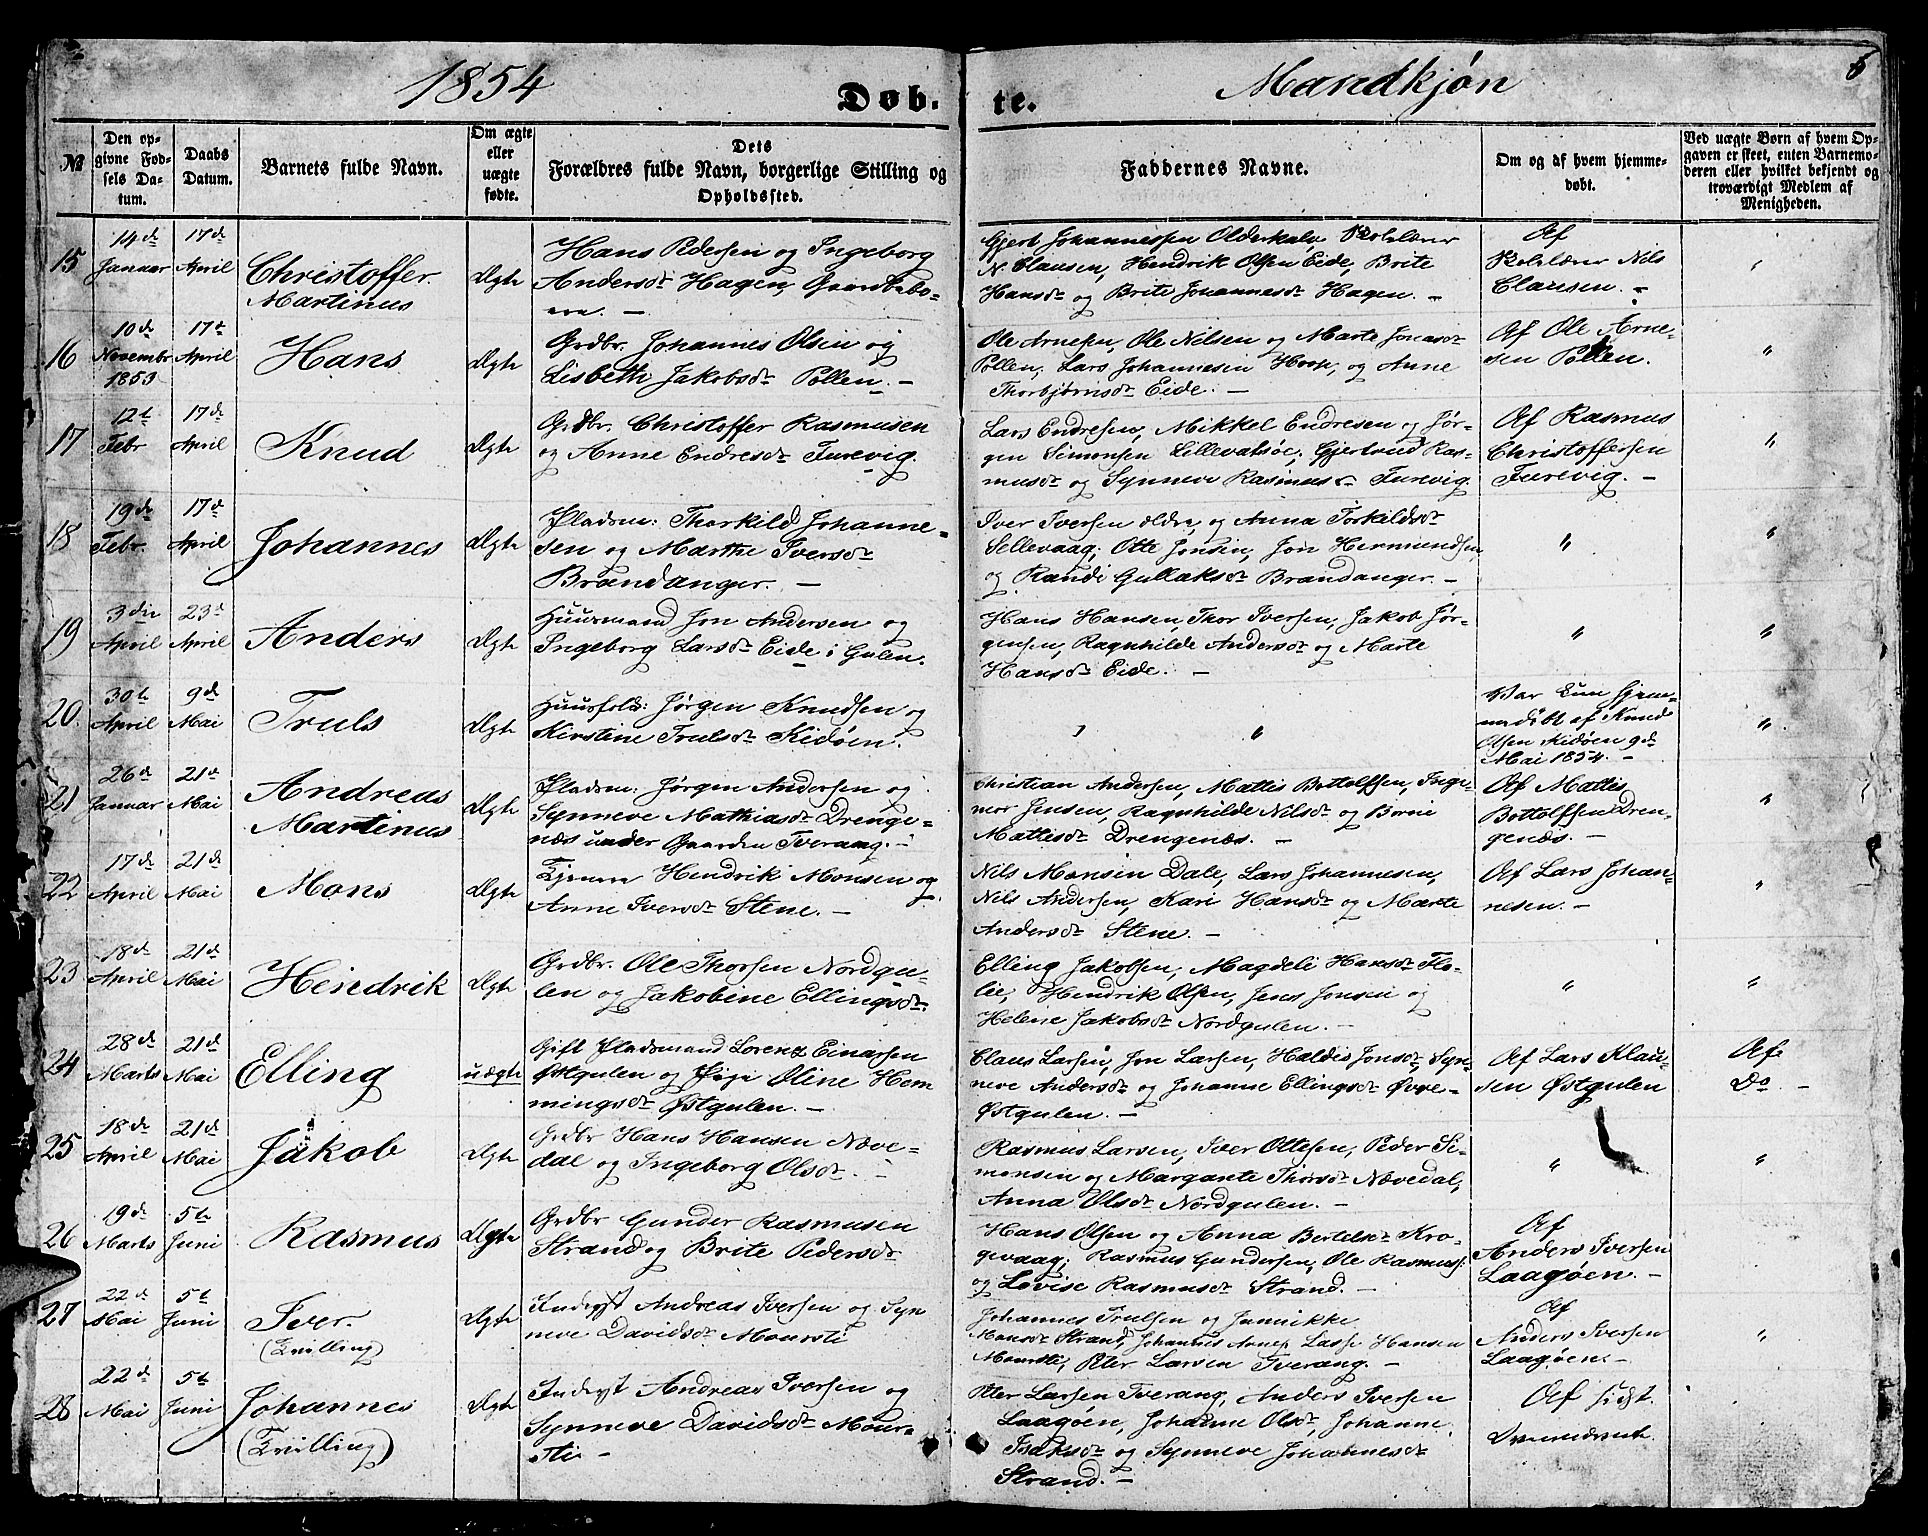 1854
Døb-te.
Mandkjøn
5
№
Den op-
givne Fød-
sels Da-
tum.
Daabs
Datum.
Barnets fulde Navn.
Om ægte
eller
uægte
fødte.
Dets
Forældres fulde Navn, borgerlige Stilling og
Opholdssted.
Faddernes Navne.
Om og af hvem hjemme-
døbt.
Ved uægte Børn af hvem Op-
gaven er skeet, enten Barnemo-
deren eller hvilket bekjendt og
troværdigt Medlem af
Menigheden.
15
14de
Januar
17de
April
Christoffer
Martinus
Ægte
Hans Pedersen og Ingeborg
Andersdr Hagen, Gaardbebo-
ere. –
Gjert Johannessen Olderkalv, Skolelærer
N. Clausen, Hendrik Olsen Eide, Brite
Hansdr og Brite Johannesdr Hagen. –
Af
Skolelærer Nils
Clausen. –
"
16
10de
Novembr
1853
17de
April
Hans
Ægte
Grdbr. Johannes Olsen og
Lisbeth Jakobsdr Pollen. –
Ole Arnesen, Ole Nilsen og Marte Jonasdr
Pollen, Lars Johannesen og Anne
Thorbjørnsdr Eide. –
Af Ole Arne-
sen Pollen.
"
17
12te
Febr
17de
April
Knud
Ægte
Grdbr. Christoffer Rasmusen
og Anne Endresdr Furevig.
Lars Endresen, Mikkel Endresen og Jør-
gen Simonsen Lillevatsøe, Gjertrud Ras-
musdr og Synneve Rasmusdr Furevig.
Af Rasmus
Christoffersen
Furevig. –
"
18
19de
Febr.
17de
April
Johannes
Ægte
Pladsm: Thorkild Johanne-
sen og Marthe Iversdr
Brandanger. –
Iver Iversen ældre, og Anna Torkildsdr
Sellevaag; Otte Jonsen, Jon Hermundsen,
og Randi Gullaksdr Brandanger. –
"
"
19
3die
April
23de
April
Anders
Ægte
Huusmand Jon Andersen og
Ingeborg Larsdr Eide i Gulen.
Hans Hansen, Thor Iversen, Jakob Jør-
gensen, Ragnhilde Andersdr og Marte
Hansdr Eide. –
"
"
20.
30te
April
9de
Mai
Truls
Ægte
Huusfolk: Jørgen Knudsen og
Kirstine Trulsdr Kidøen.
"
Var kun hjem-
medøbt af Knud
Olsen Kidøen 9de
Mai 1854. –
"
21
26de
Januar
21de
Mai
Andreas
Martinus
Ægte
Pladsm: Jørgen Andersen og
Synneve Mathiasdr Drenge-
næs under Gaarden Tveraag. –
Christian Andersen, Mattis Bottolfsen, Inge-
mor Jensen, Ragnhilde Nilsdr og
Mattisdr Drengenæs. –
Af Mattis
Bottolfsen Dren-
genæs. –
"
22
17de
April
21de
Mai
Mons
Ægte
Tjenere Hendrik Monsen og
Anne Iversdr Stene. –
Nils Monsen Dale, Lars Johannesen,
Nils Andersen, Kari Hansdr og Marte
Andersdr Stene. –
Af Lars Johan-
nesen. –
"
23
18de
April
21de
Mai
Hendrik
Ægte
Grdbr. Ole Thorsen Nordgu-
len og Jakobine Ellingsdr.
Elling Jakobsen, Magdeli Hansdr Flo-
lie, Hendrik Olsen, Jens Jonsen og
Helene Jakobsdr Nordgulen. –
"
"
24
28de
Marts
21de
Mai
Elling
uægte
Gift Pladsmand Lorenz Einarsen
Østgulen og Pige Oline Hem
mingsdr Østgulen. –
Claus Larsen, Jon Larsen, Haldis Jonsdr, Syn-
neve Andersdr og Johanne Ellingsdr Øvre-
Østgulen. –
Af Lars Klau-
sen Østgulen
Af
Do –
25
18de
April
21de
Mai
Jakob
Ægte
Grdbr Hans Hansen Næve-
dal og Ingeborg Olsdr. –
Rasmus Larsen, Iver Ottesen, Peder Si-
monsen og Margrete Thorsdr Nævedal,
Anna Olsdr Nordgulen. –
"
"
26
19de
Marts
5te
Juni
Rasmus
Ægte
Grdbr Gunder Rasmusen
Strand og Brite Pedersdr
Hans Olsen og Anna Bertelsdr Kro-
gevaag; Rasmus Gundersen, Ole Rasmuss:
og Lovise Rasmusdr Strand. –
Af
Anders Iversen
Laagøen. –
27
22de
Mai
5te
Juni
Iver
(Tvilling)
Ægte
Inderst Andreas Iversen og Syn
neve Davidsdr Moursti
Johannes Trulsen og Jannikke
Monsdr Strand, Johannes Lasse Hansen
Moursti, Peter Larsen Tverang. –
Af
Anders Iversen
Laagøen. –
"
28
22de
Mai
5te
Juni
Johannes
(Tvilling)
Ægte
Inderst Andreas Iversen og
Synneve Davidsdr Mour-
sti –
Peter Larsen Tverang, Anders Iversen
Laagøen, Johanne Olsdr, Johanne
Isaksdr og Synneve Johannesdr
Strand. –
Af sidst